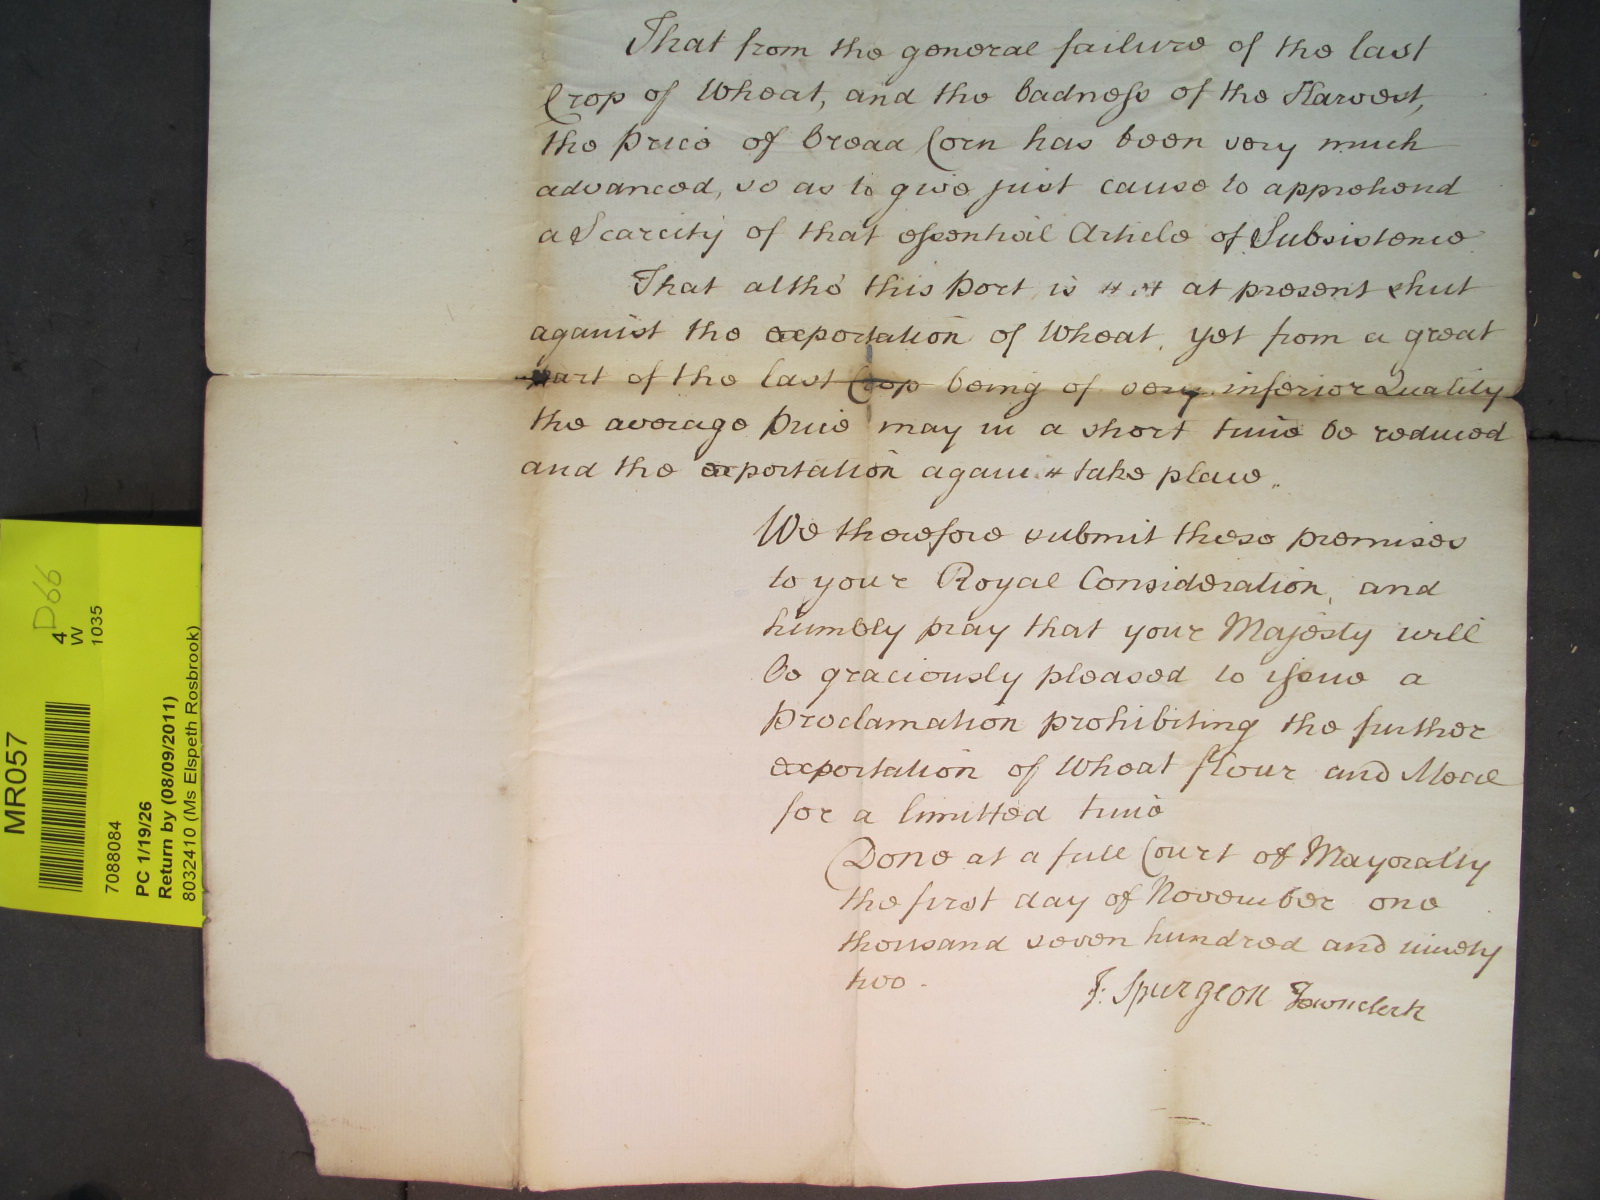 That from the general failure of the last
Crop of Wheat, and the badness of the Harvest,
the price of bread Corn has been very much
advanced, so as to give just cause to apprehend
a Scarcity of that essential Article of Subsistence
That altho' this Port is at present shut
against the exportation of Wheat, yet from a great
part of the last Crop being of very inferior Quality
the average price may in a short time be reduced
and the exportation again take place.
We therefore submit these premises
to your Royal Consideration, and
humbly pray that your Majesty will
be graciously pleased to issue a
proclamation prohibiting the further
exportation of Wheat flour and Meal
for a limitted time
Done at a full Court of Mayoralty
the first day of November one
thousand seven hundred and ninety
two.
J: Spurgeon Townclerk
D66
4
W
1035
MR057
7088084
PC 1/19/26
Return by (08/09/2011)
8032410 (Ms Elspeth Rosbrook)